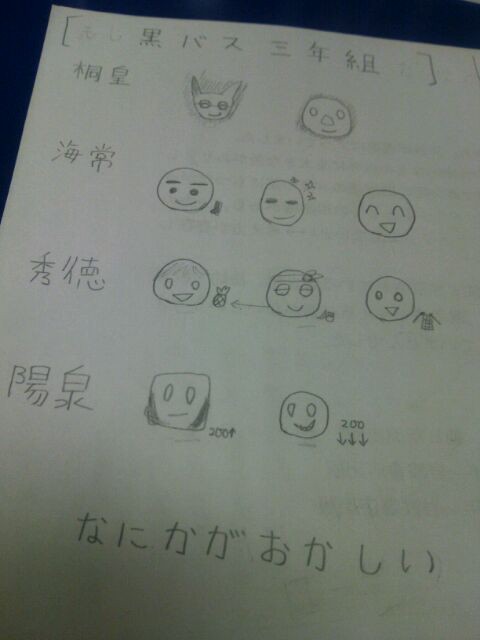 [ 黒バス三年組 ]
桐皇
海常
秀徳
陽泉
200↑
200
↓↓↓
なにかがおかしい